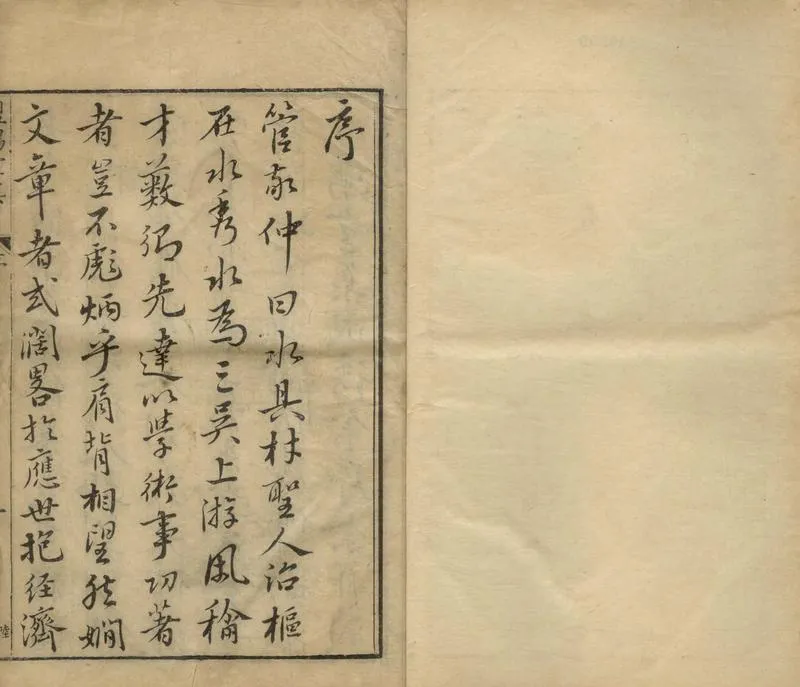 序
管敬仲曰水具材聖人治樞
在水秀水為三吳上游夙稱
才藪鄉先達以學術事功著
者豈不彪炳乎肩背相望然嫻
文章者或濶畧於應世抱經濟